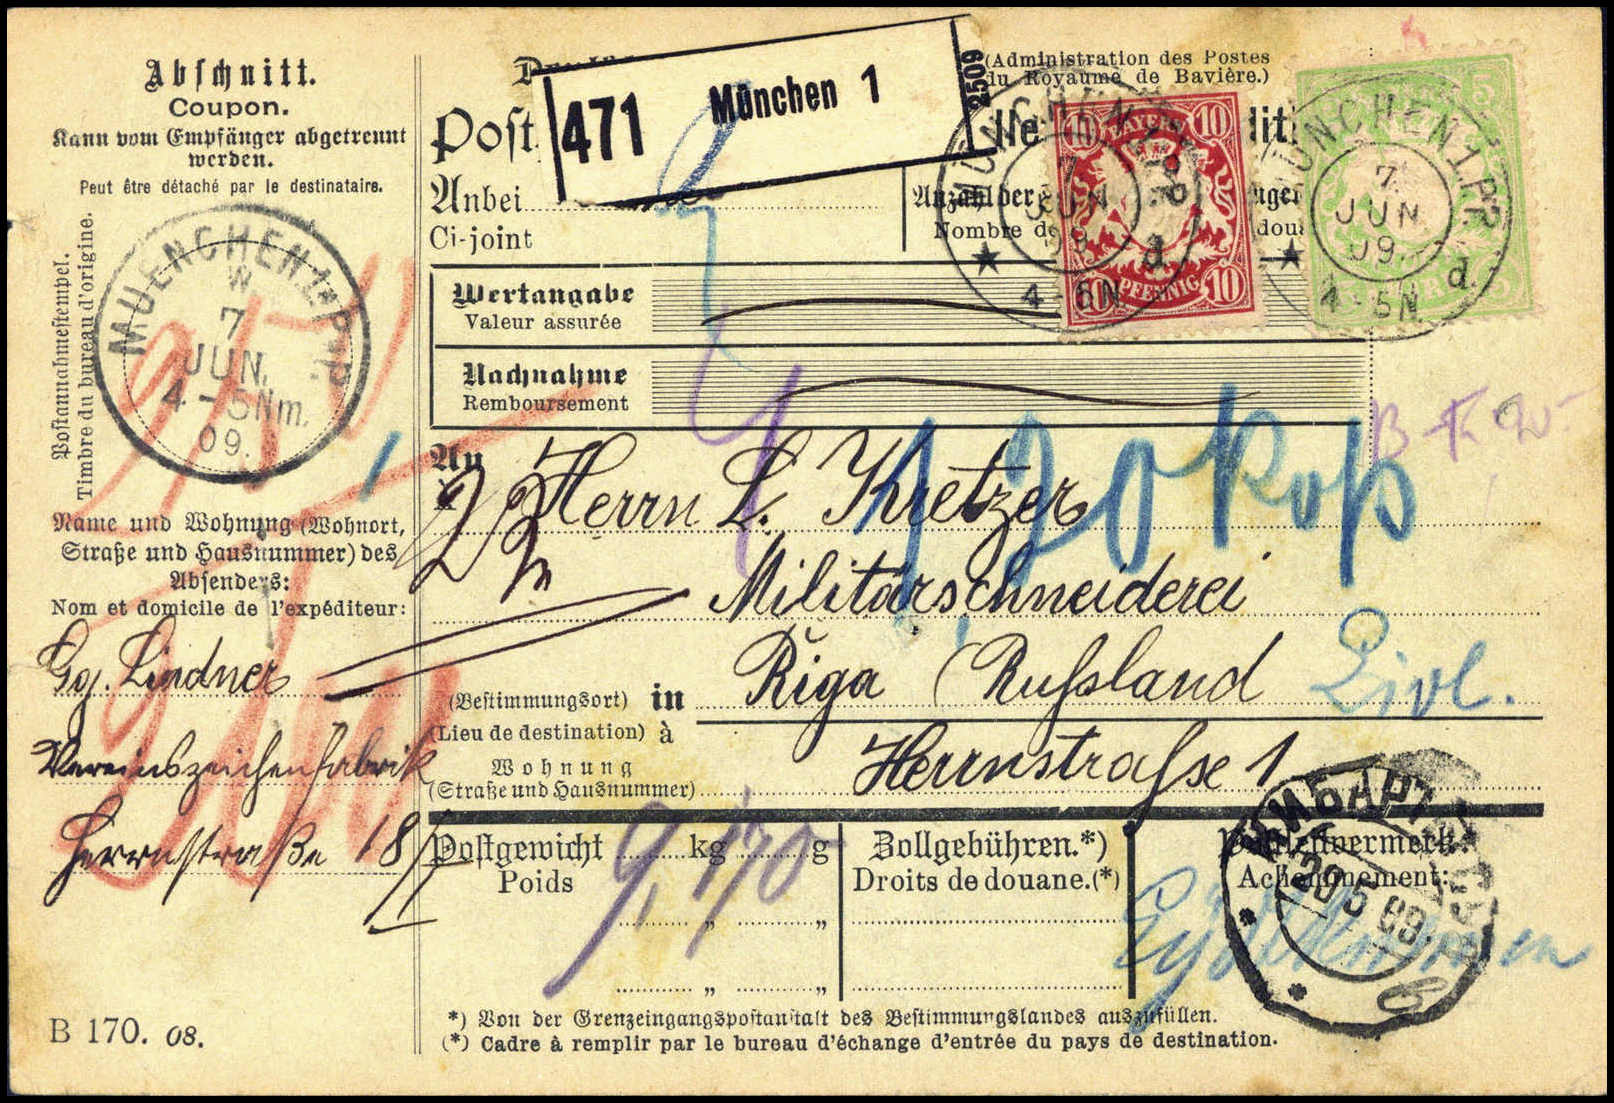 Abschnitt.
Coupon.
Kann vom Empfänger abgetrennt
werden.
Peut être détaché par le destinataire.
Postannahmestempel.
Timbre du bureau d'origine.
MUENCHEN 1 P.P.
W.
7
JUN.
4-5Nm.
09.
Name und Wohnung (Wohnort,
Straße und Hausnummer) des
Absenders:
Nom et domicile de l'expéditeur:
Gg. Lindner
Vereinszeichenfabrik
Herrnstraße 18/
B 170. 08.
471 München 1 2509
(Administration des Postes
du Royaume de Bavière.)
Post
Anbei
Ci-joint
Anzahl der
Nombre de
MÜNCHEN
7
JUN
09
d.
4-5N.
10 BAYERN 10
10 PFENNIG 10
MÜNCHEN.1.P.P.
7.
JUN.
09.
d.
4-5N.
5
Wertangabe
Valeur assurée
Nachnahme
Remboursement
An
Herrn L. Kretzer
Militärschneiderei
(Bestimmungsort) in Riga (Russland Livl.
(Lieu de destination) à
Wohnung Herrnstrasse 1
(Straße und Hausnummer)
Postgewicht kg g
Poids
9,170
" "
" "
Zollgebühren.*)
Droits de douane.(*)
Acheminement:
Eydtkuhnen
20 5 09.
*) Von der Grenzeingangspostanstalt des Bestimmungslandes auszufüllen.
(*) Cadre à remplir par le bureau d'échange d'entrée du pays de destination.